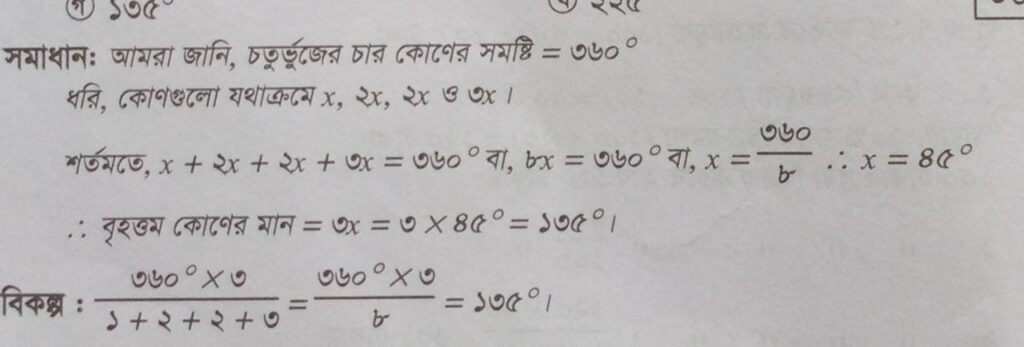 গ ১৩৫°
ঘ ২২৫
সমাধান: আমরা জানি, চতুর্ভুজের চার কোণের সমষ্টি = ৩৬০°
ধরি, কোণগুলো যথাক্রমে x, ২x, ২x ও ৩x।
শর্তমতে, x + ২x + ২x + ৩x = ৩৬০° বা, ৮x = ৩৬০° বা, x = ৩৬০/৮ ∴ x = ৪৫°
∴ বৃহত্তম কোণের মান = ৩x = ৩ × ৪৫° = ১৩৫°।
বিকল্প : ৩৬০° × ৩ / ১ + ২ + ২ + ৩ = ৩৬০° × ৩ / ৮ = ১৩৫°।